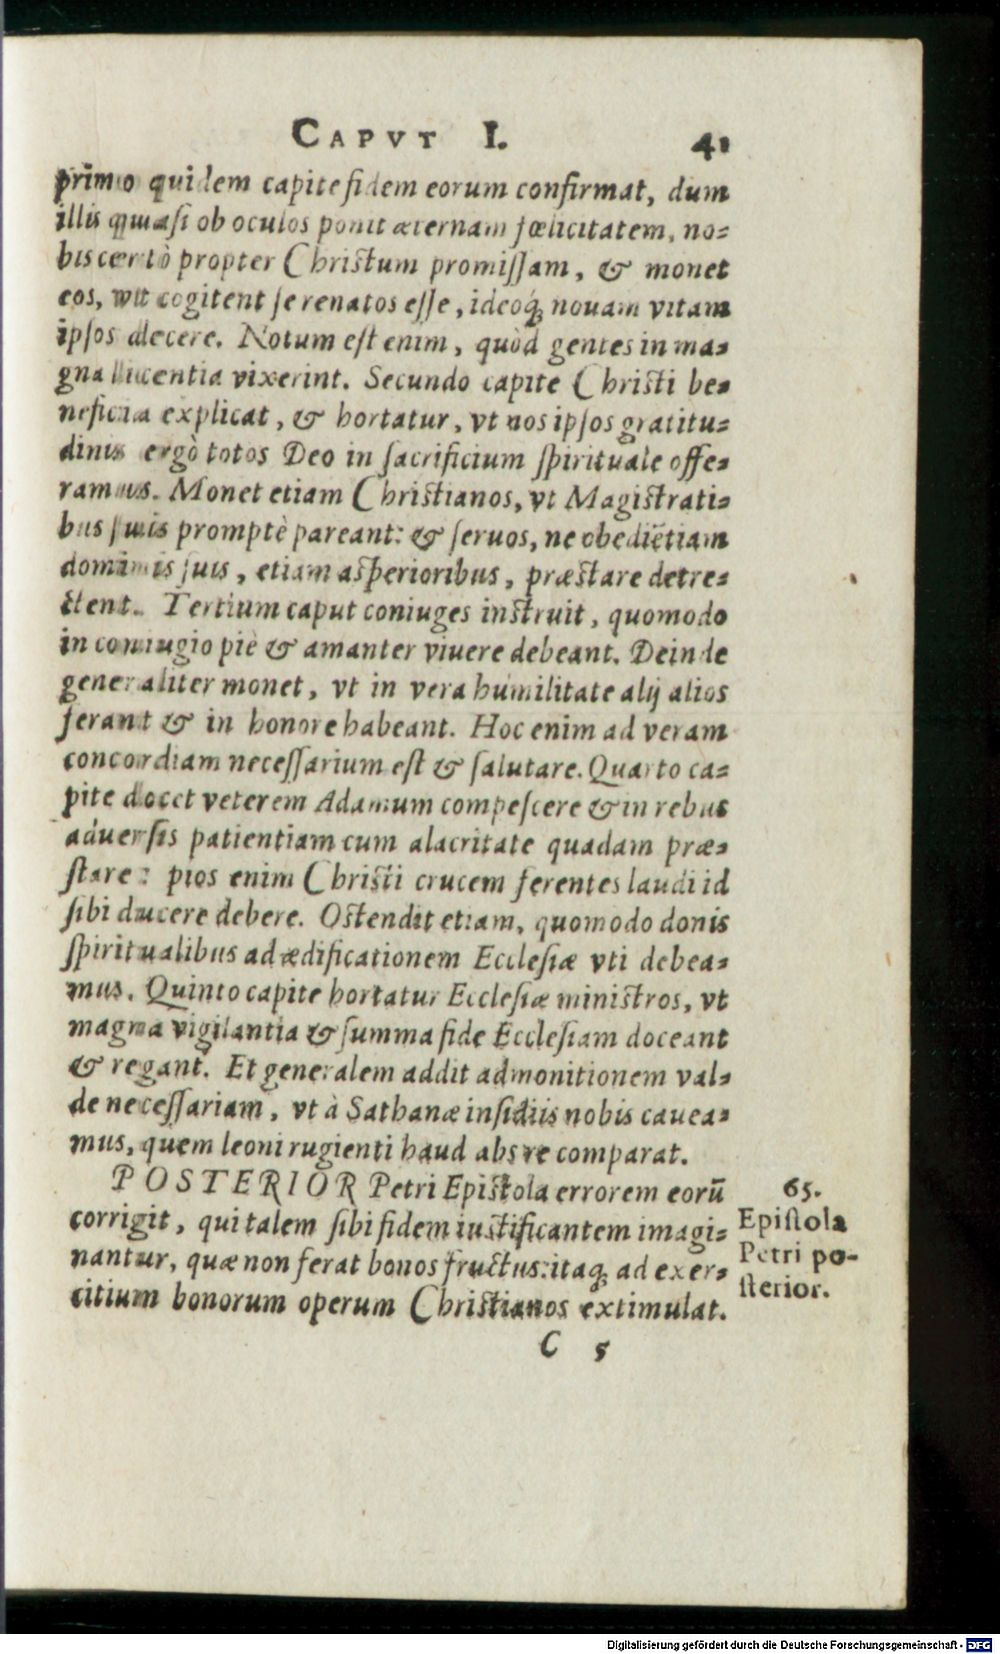 CAPVT I. 41
primo quidem capite fidem eorum confirmat, dum
illis quasi ob oculos ponit æternam fœlicitatem, no-
bis certò propter Christum promissam, & monet
eos, vt cogitent se renatos esse, ideoq́; nouam vitam
ipsos decere. Notum est enim, quòd gentes in ma-
gna licentia vixerint. Secundo capite Christi be-
neficia explicat, & hortatur, vt nos ipsos gratitu-
dinis ergò totos Deo in sacrificium spirituale offe-
ramus. Monet etiam Christianos, vt Magistrati-
bus suis promptè pareant: & seruos, ne obediẽtiam
dominis suis, etiam asperioribus, præstare detre-
ctent. Tertium caput coniuges instruit, quomodo
in coniugio piè & amanter viuere debeant. Deinde
generaliter monet, vt in vera humilitate alij alios
ferant & in honore habeant. Hoc enim ad veram
concordiam necessarium est & salutare. Quarto ca-
pite docet veterem Adamum compescere & in rebus
aduersis patientiam cum alacritate quadam præ-
stare: pios enim Christi crucem ferentes laudi id
sibi ducere debere. Ostendit etiam, quomodo donis
spiritualibus ad ædificationem Ecclesiæ vti debea-
mus. Quinto capite hortatur Ecclesiæ ministros, vt
magna vigilantia & summa fide Ecclesiam doceant
& regant. Et generalem addit admonitionem val-
de necessariam, vt à Sathanæ insidiis nobis cauea-
mus, quem leoni rugienti haud abs re comparat.
POSTERIOR Petri Epistola errorem eorũ
corrigit, qui talem sibi fidem iustificantem imagi-
nantur, quæ non ferat bonos fructus: itaq; ad exer-
citium bonorum operum Christianos extimulat.
65.
Epistola
Petri po-
sterior.
C 5
Digitalisierung gefördert durch die Deutsche Forschungsgemeinschaft - DFG